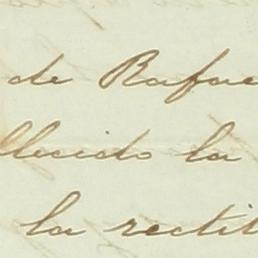 de Rafae
llecido la
la rectit